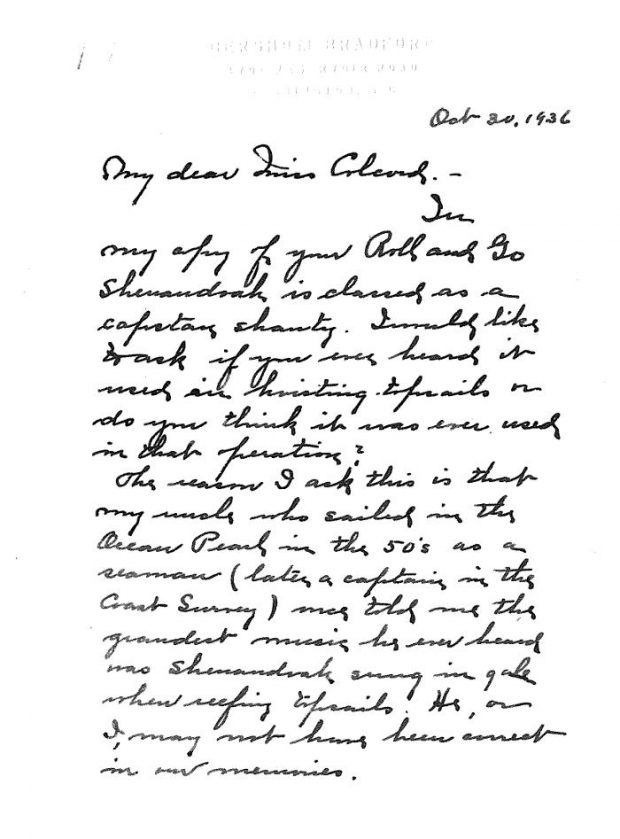 GERSHOM BRADFORD
Oct 20, 1936
My dear Miss Colcord. -
In
my copy of your Roll and Go
Shenandoah is classed as a
capstan shanty. I would like
to ask if you ever heard it
used in hoisting topsails or
do you think it was ever used
in that operation?
The reason I ask this is that
my uncle who sailed in the
Ocean Pearl in the 50's as a
seaman (later a captain in the
Coast Survey) once told me the
grandest music he ever heard
was Shenandoah sung in gale
when reefing topsails. He, or
I, may not have been correct
in our memories.